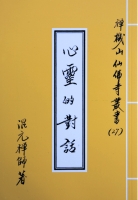 禪機山仙佛寺叢書(47)
心靈的對話
混元禪師著